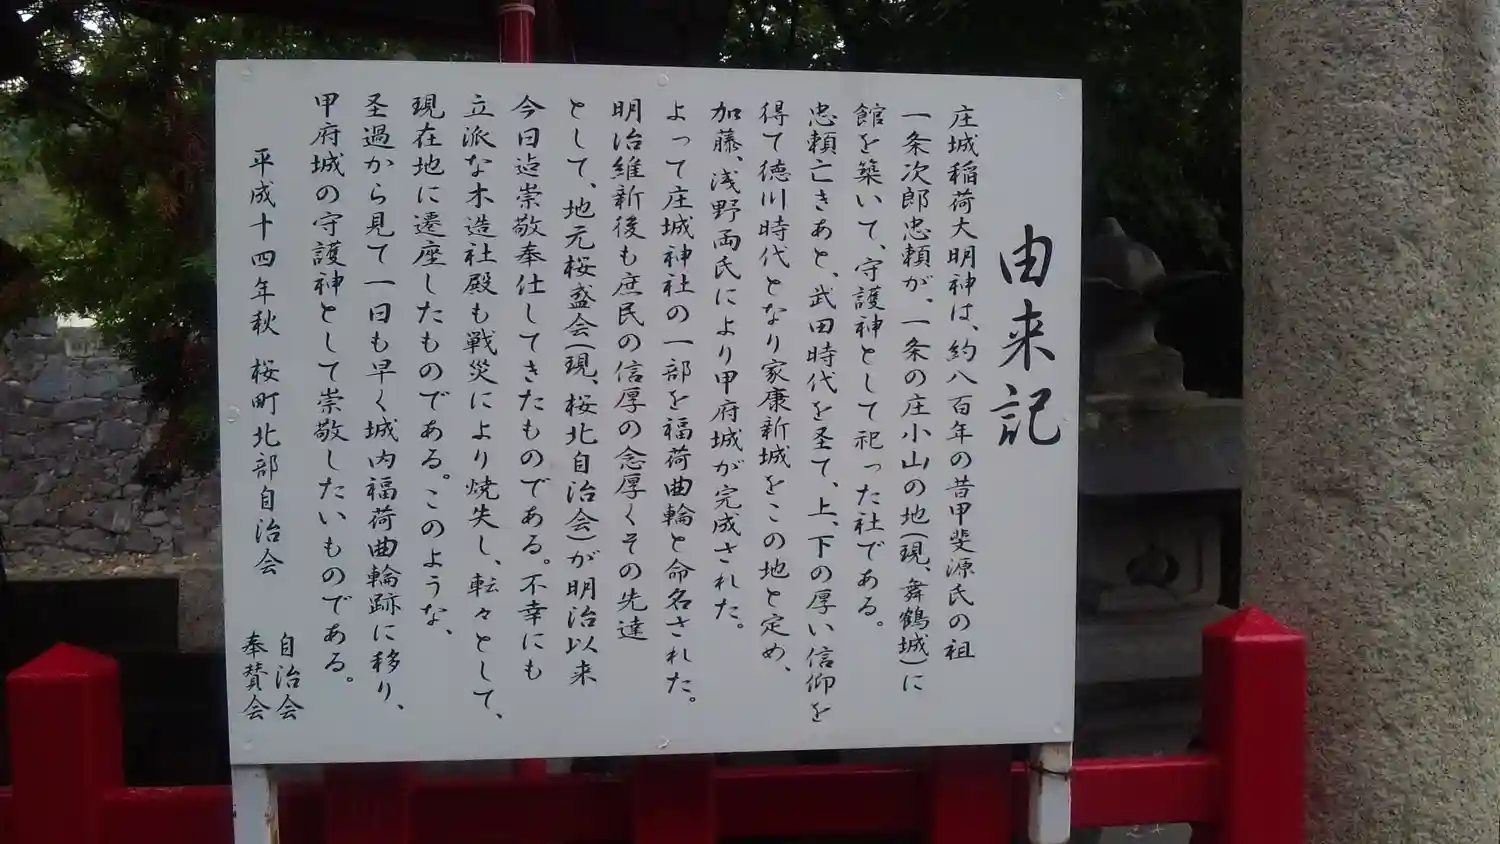 由来記
庄城稲荷大明神は、約八百年の昔甲斐源氏の祖
一条次郎忠頼が、一条の庄小山の地(現、舞鶴城)に
館を築いて、守護神として祀った社である。
忠頼亡きあと、武田時代を圣て、上、下の厚い信仰を
得て徳川時代となり家康新城をこの地と定め、
加藤、浅野両氏により甲府城が完成された。
よって庄城神社の一部を福荷曲輪と命名された。
明治維新後も庶民の信厚の念厚くその先達
として、地元桜盛会(現、桜北自治会)が明治以来
今日迠崇敬奉仕してきたものである。不幸にも
立派な木造社殿も戦災により焼失し、転々として、
現在地に遷座したものである。このような、
圣過から見て一日も早く城内福荷曲輪跡に移り、
甲府城の守護神として崇敬したいものである。
平成十四年秋 桜町北部自治会
自治会
奉賛会